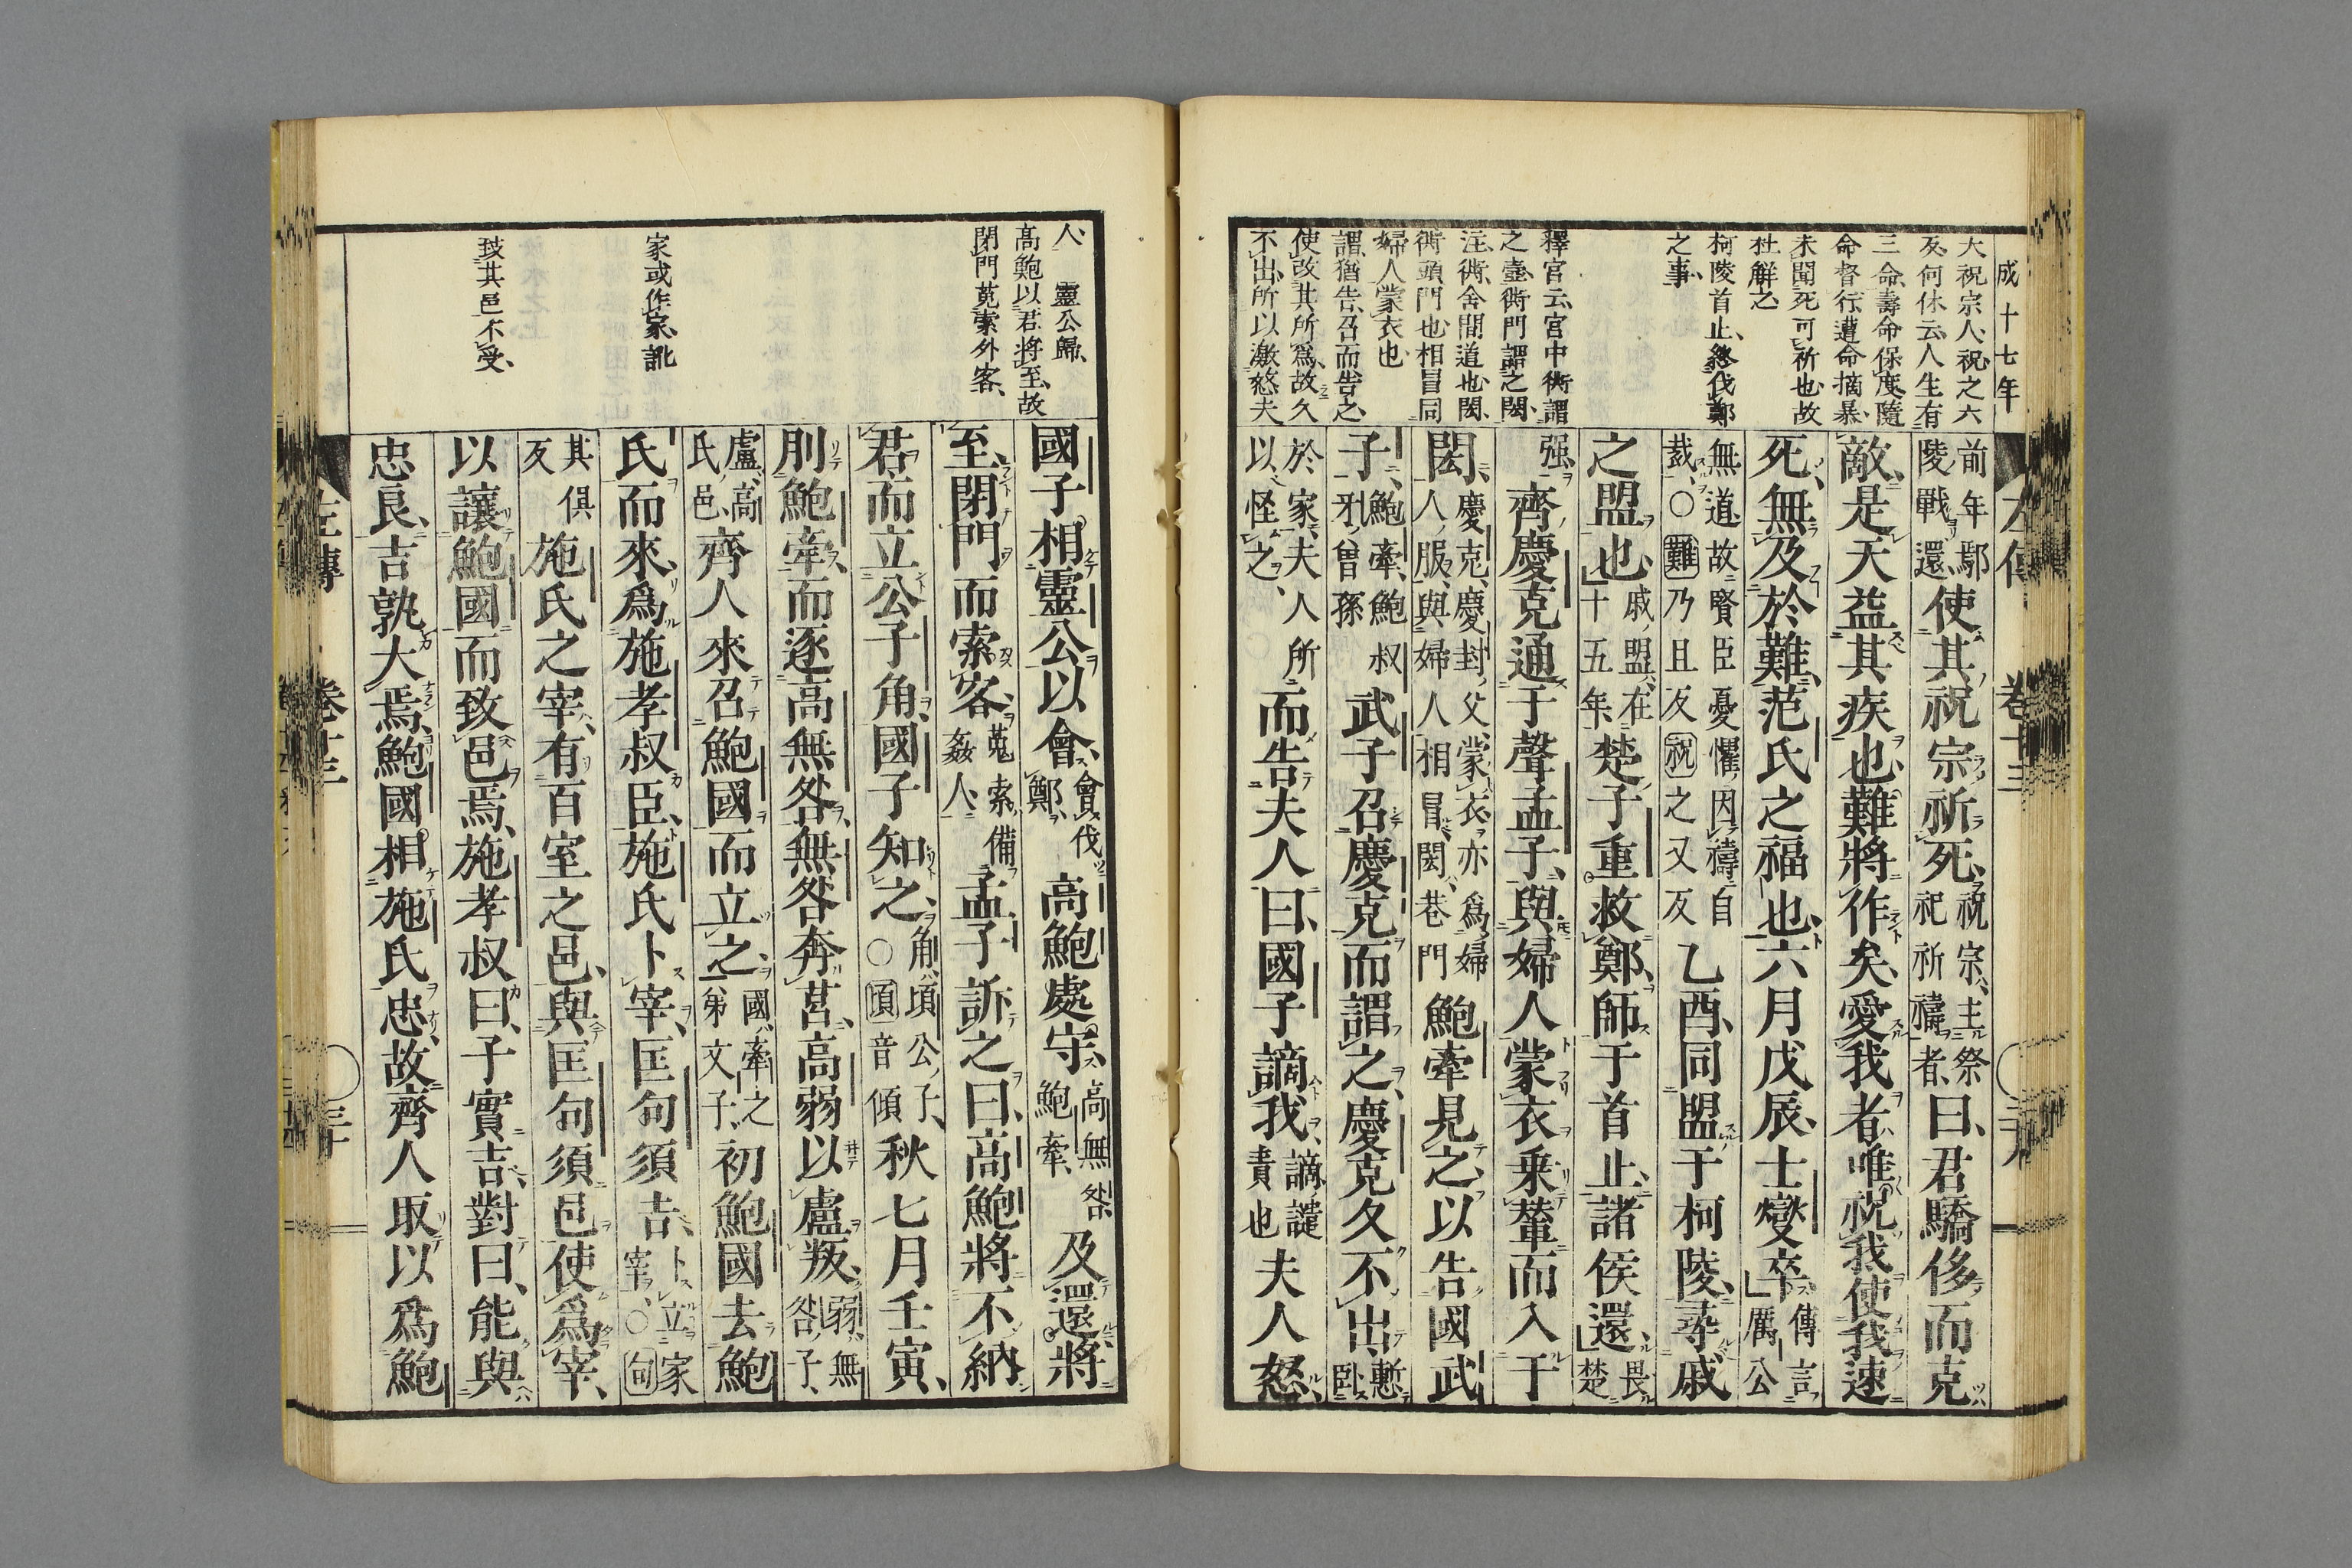 成十七年
大祝宗人、祝之六
反、何休云、人生有
三命、壽命保度、隨
命督行、遭命摘暴、
未聞死可祈也、故
杜解之
柯陵首止、伐鄭
之事
釋宮云、宮中衖謂
之壼、衖門謂之閎
注、衖、舍間道也、閎、
衖頭門也、相冒同
婦人蒙衣也
謂、猶告、召而告之、
使改其所爲、故久
不出、所以激怒夫
左傳 卷十三 二十九
前年鄢陵戰還、使其祝宗祈死、祝宗、主祭祀祈禱者、曰、君驕侈而克
敵、是天益其疾也、難將作矣、愛我者、唯祝我使我速
死、無及於難、范氏之福也、六月戊辰、士燮卒、傳言厲公
無道、故賢臣憂懼、因禱自裁、○難乃且反祝之又反乙酉、同盟于柯陵、尋戚
之盟也、戚盟、在十五年、楚子重救鄭、師于首止、諸侯還、畏楚
强、齊慶克通于聲孟子、與婦人蒙衣乘輦而入于
閎、慶克、慶封父、蒙衣、亦爲婦人服、與婦人相冒、閎、巷門鮑牽見之、以告國武
子、鮑牽、鮑叔牙曾孫武子召慶克而謂之、慶克久不出、慙臥
於家、夫人所以怪之、而告夫人曰、國子謫我、謫、譴責也夫人怒、
人、靈公歸、
高鮑以君將至、故
閉門蒐索外客、
家或作家、訛
致其邑不受、
國子相靈公以會、會伐鄭、高鮑處守、高無咎鮑牽、及還將
至、閉門而索客、蒐索、備姦人、孟子訴之曰、高鮑將不納
君、而立公子角、國子知之、角、頃公子、○頃音傾秋七月壬寅、
刖鮑牽、而逐高無咎、無咎奔莒、高弱以盧叛、弱、無咎子、
盧、高氏邑、齊人來召鮑國而立之、國、牽之弟文子、初鮑國去鮑
氏而來、爲施孝叔臣、施氏卜宰、匡句須吉、卜立家宰、○句
其俱反施氏之宰、有百室之邑、與匡句須邑使爲宰、
以讓鮑國而致邑焉、施孝叔曰、子實吉、對曰、能與
忠良、吉孰大焉、鮑國相施氏忠、故齊人取以爲鮑
左傳 卷十三 三十